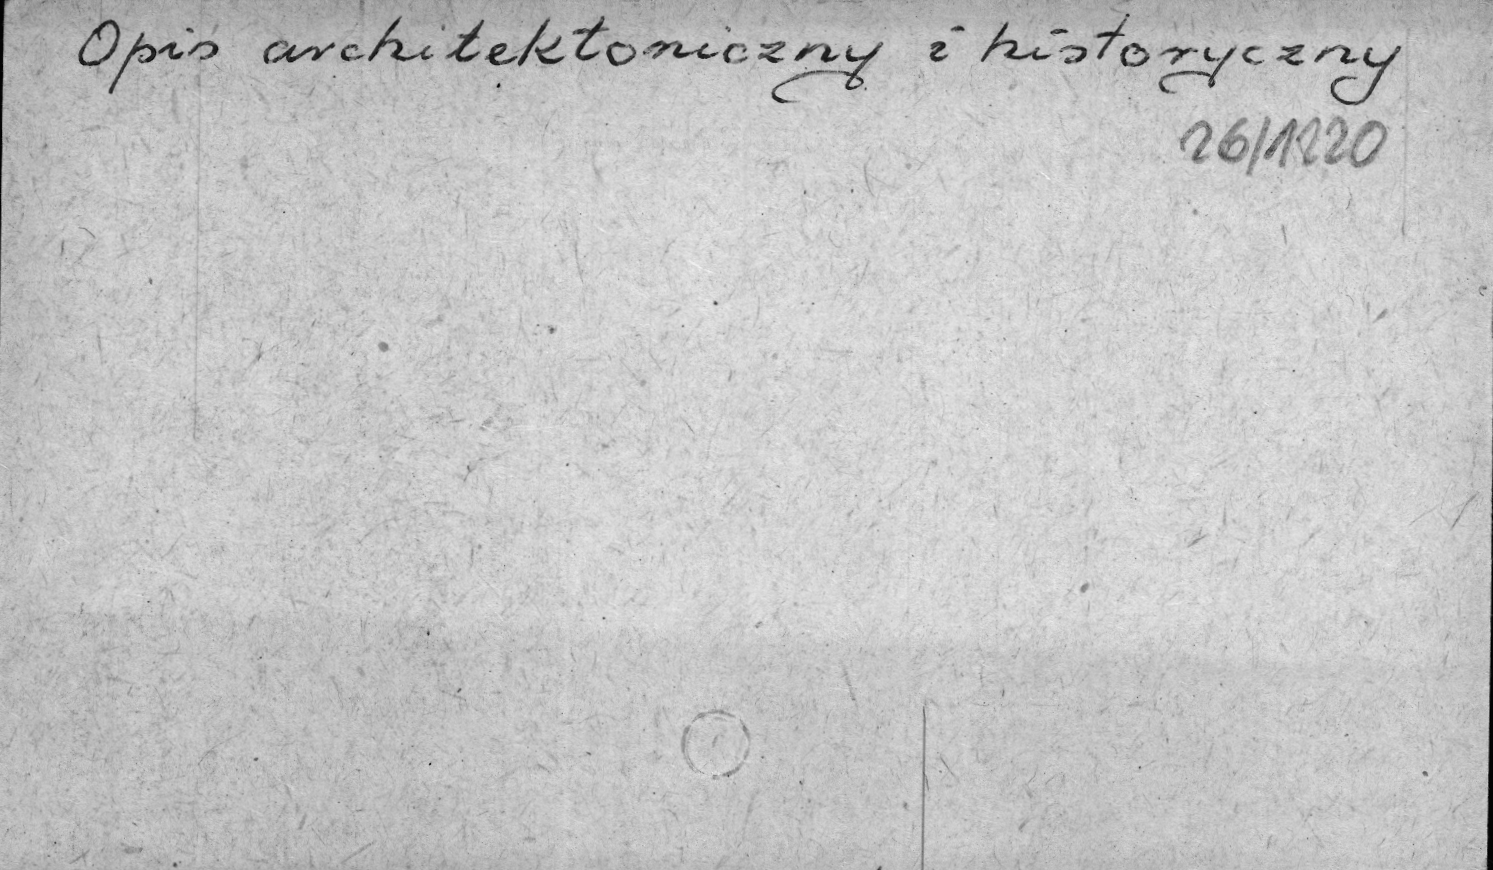 Opis architektoniczny i historyczny
26/1220